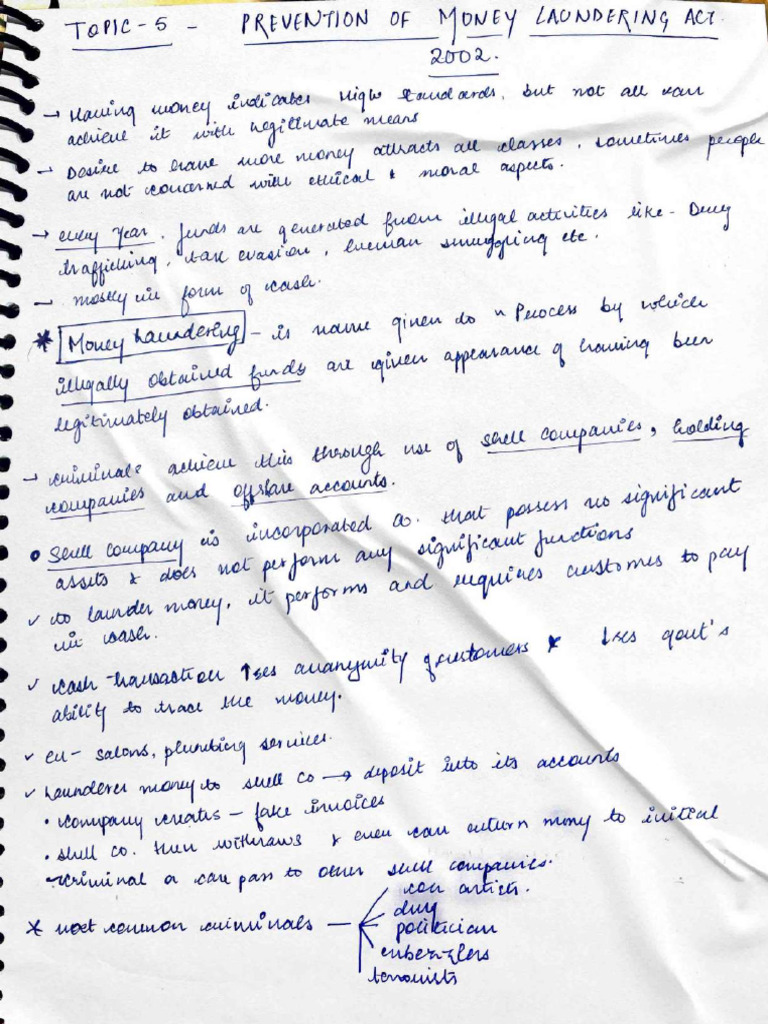 TOPIC-5 - PREVENTION OF MONEY LAUNDERING ACT.
2002.
→ Having money indicates High standards, but not all can
achieve it with legitimate means
→ Desire to have more money attracts all classes, sometimes people
are not concerned with ethical & moral aspects.
→ every year, funds are generated from illegal activities like - Drug
trafficking, tax evasion, human smuggling etc.
→ mostly in form of cash.
* Money Laundering - is name given to "Process by which
illegally obtained funds are given appearance of having been
legitimately obtained.
→ criminals achieve this through use of shell companies, holding
companies and offshore accounts.
• Shell company is incorporated co. that possess no significant
assets & does not perform any significant functions
✓ to launder money, it performs and requires customers to pay
in cash.
✓ cash transaction ↑ses anonymity of customers & ↓ses govt's
ability to trace the money.
✓ ex- salons, plumbing services.
✓ Launderer money to shell co → deposit into its accounts
• company creates - fake invoices
• shell co. then withdraws & even can return money to initial
criminal or can pass to other shell companies.
* most common criminals - con artists.
drug
politician
embezzlers
terrorists